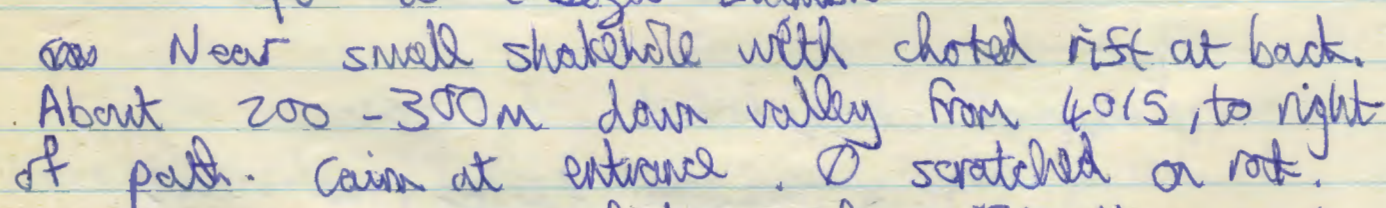 Near small shakehole with choked rift at back.
About 200-300m down valley from 4015, to right
of path. Cairn at entrance. Ø scratched on rock.